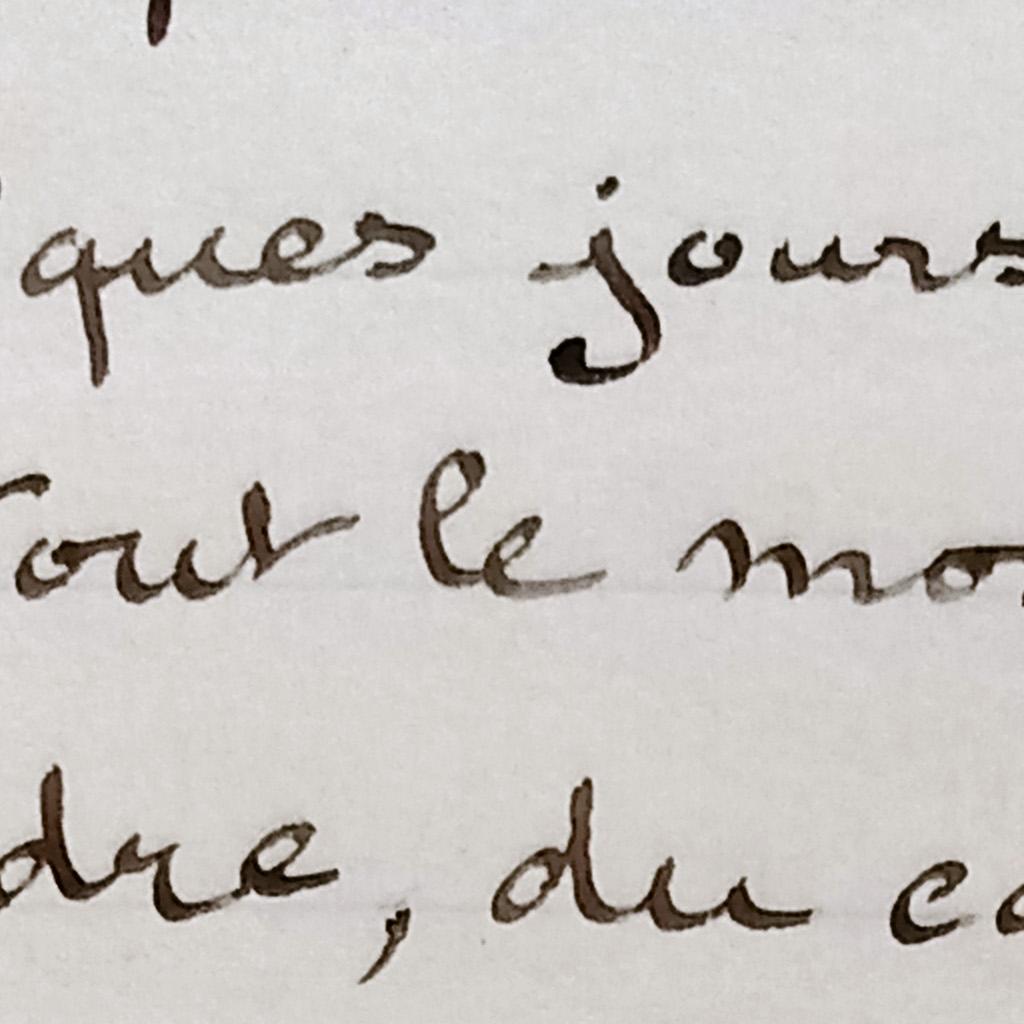 ques jours
tout le mo
dre, du co